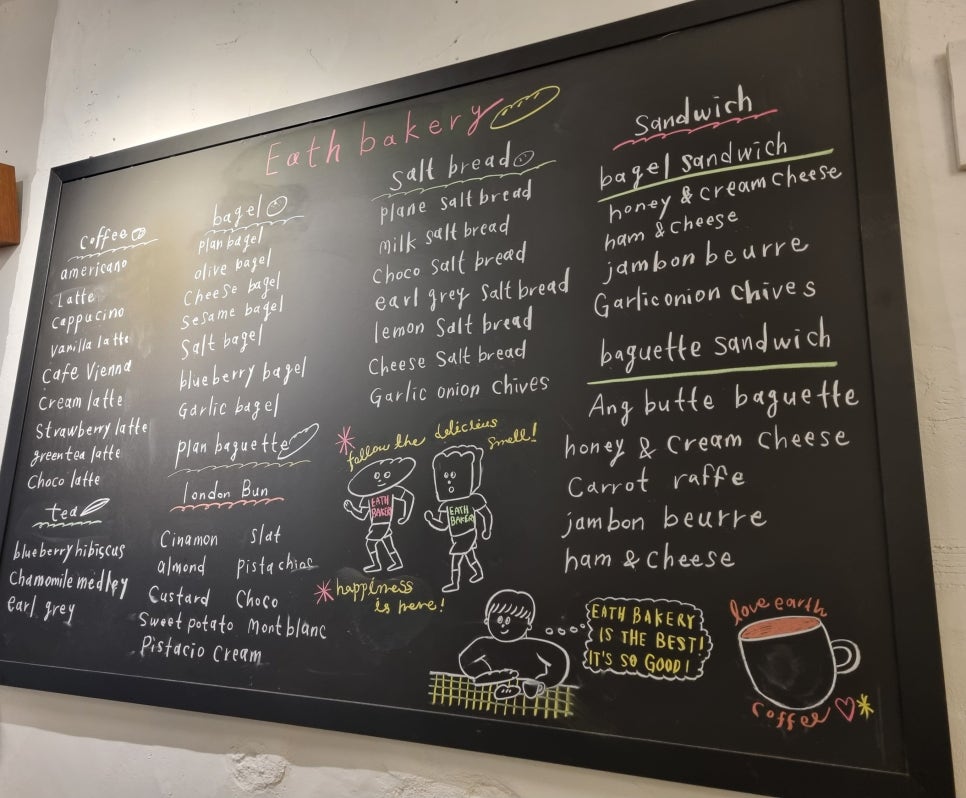 Eath bakery
Coffee
americano
Latte
Cappucino
Vanilla latte
Cafe Vienna
Cream latte
Strawberry latte
greentea latte
Choco latte
tea
blueberry hibiscus
Chamomile medley
earl grey
bagel
plan bagel
olive bagel
Cheese bagel
Sesame bagel
Salt bagel
blueberry bagel
Garlic bagel
plan baguette
london Bun
Cinamon slat
almond pistachios
Custard Choco
Sweet potato Montblanc
Pistacio Cream
Salt bread
plane salt bread
milk salt bread
Choco Salt bread
earl grey Salt bread
lemon Salt bread
Cheese Salt bread
Garlic onion chives
follow the delicious
smell!
EATH
BAKERY
EATH
BAKERY
happiness
is here!
Sandwich
bagel sandwich
honey & cream cheese
ham & cheese
jambon beurre
Garlic onion chives
baguette sandwich
Ang butte baguette
honey & cream cheese
Carrot raffe
jambon beurre
ham & cheese
EATH BAKERY
IS THE BEST!
IT'S SO GOOD!
love earth
coffee